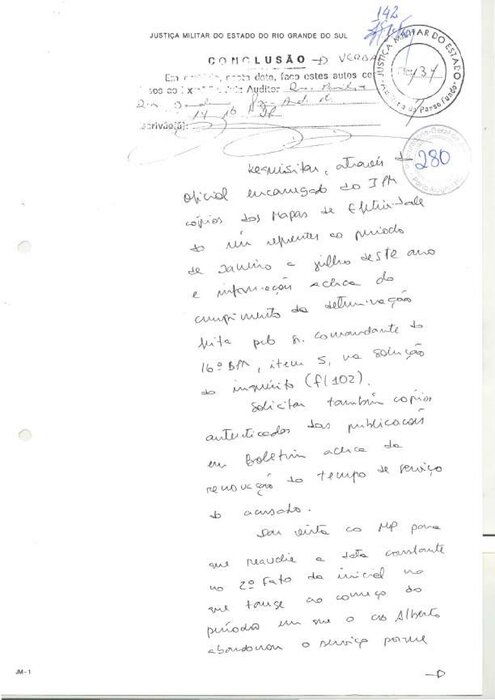 142
JUSTIÇA MILITAR DO ESTADO DO RIO GRANDE DO SUL
CONCLUSÃO → VERBA
Em nesta data, faço estes autos co
sos ao Auditor
14 16
Escrivão(ã):
JUSTIÇA MILITAR DO ESTADO
137
Auditoria de Passo Fundo
280
Requisitar, através do
oficial encarregado do IPM
cópias dos Mapas de Efetividade
do réu referentes ao período
de janeiro a julho deste ano
e informação acerca do
cumprimento da determinação
feita pelo Sr. Comandante do
16º BPM, item 5, na solução
do inquérito (fl 102).
Solicitar também cópias
autenticadas das publicações
em Boletim acerca da
renovação do tempo de serviço
do acusado.
Dar vista ao MP para
que reavalie a data constante
no 2º Fato da inicial no
que tange ao começo do
período em que o Alberto
abandonou o serviço porque
JM-1
→